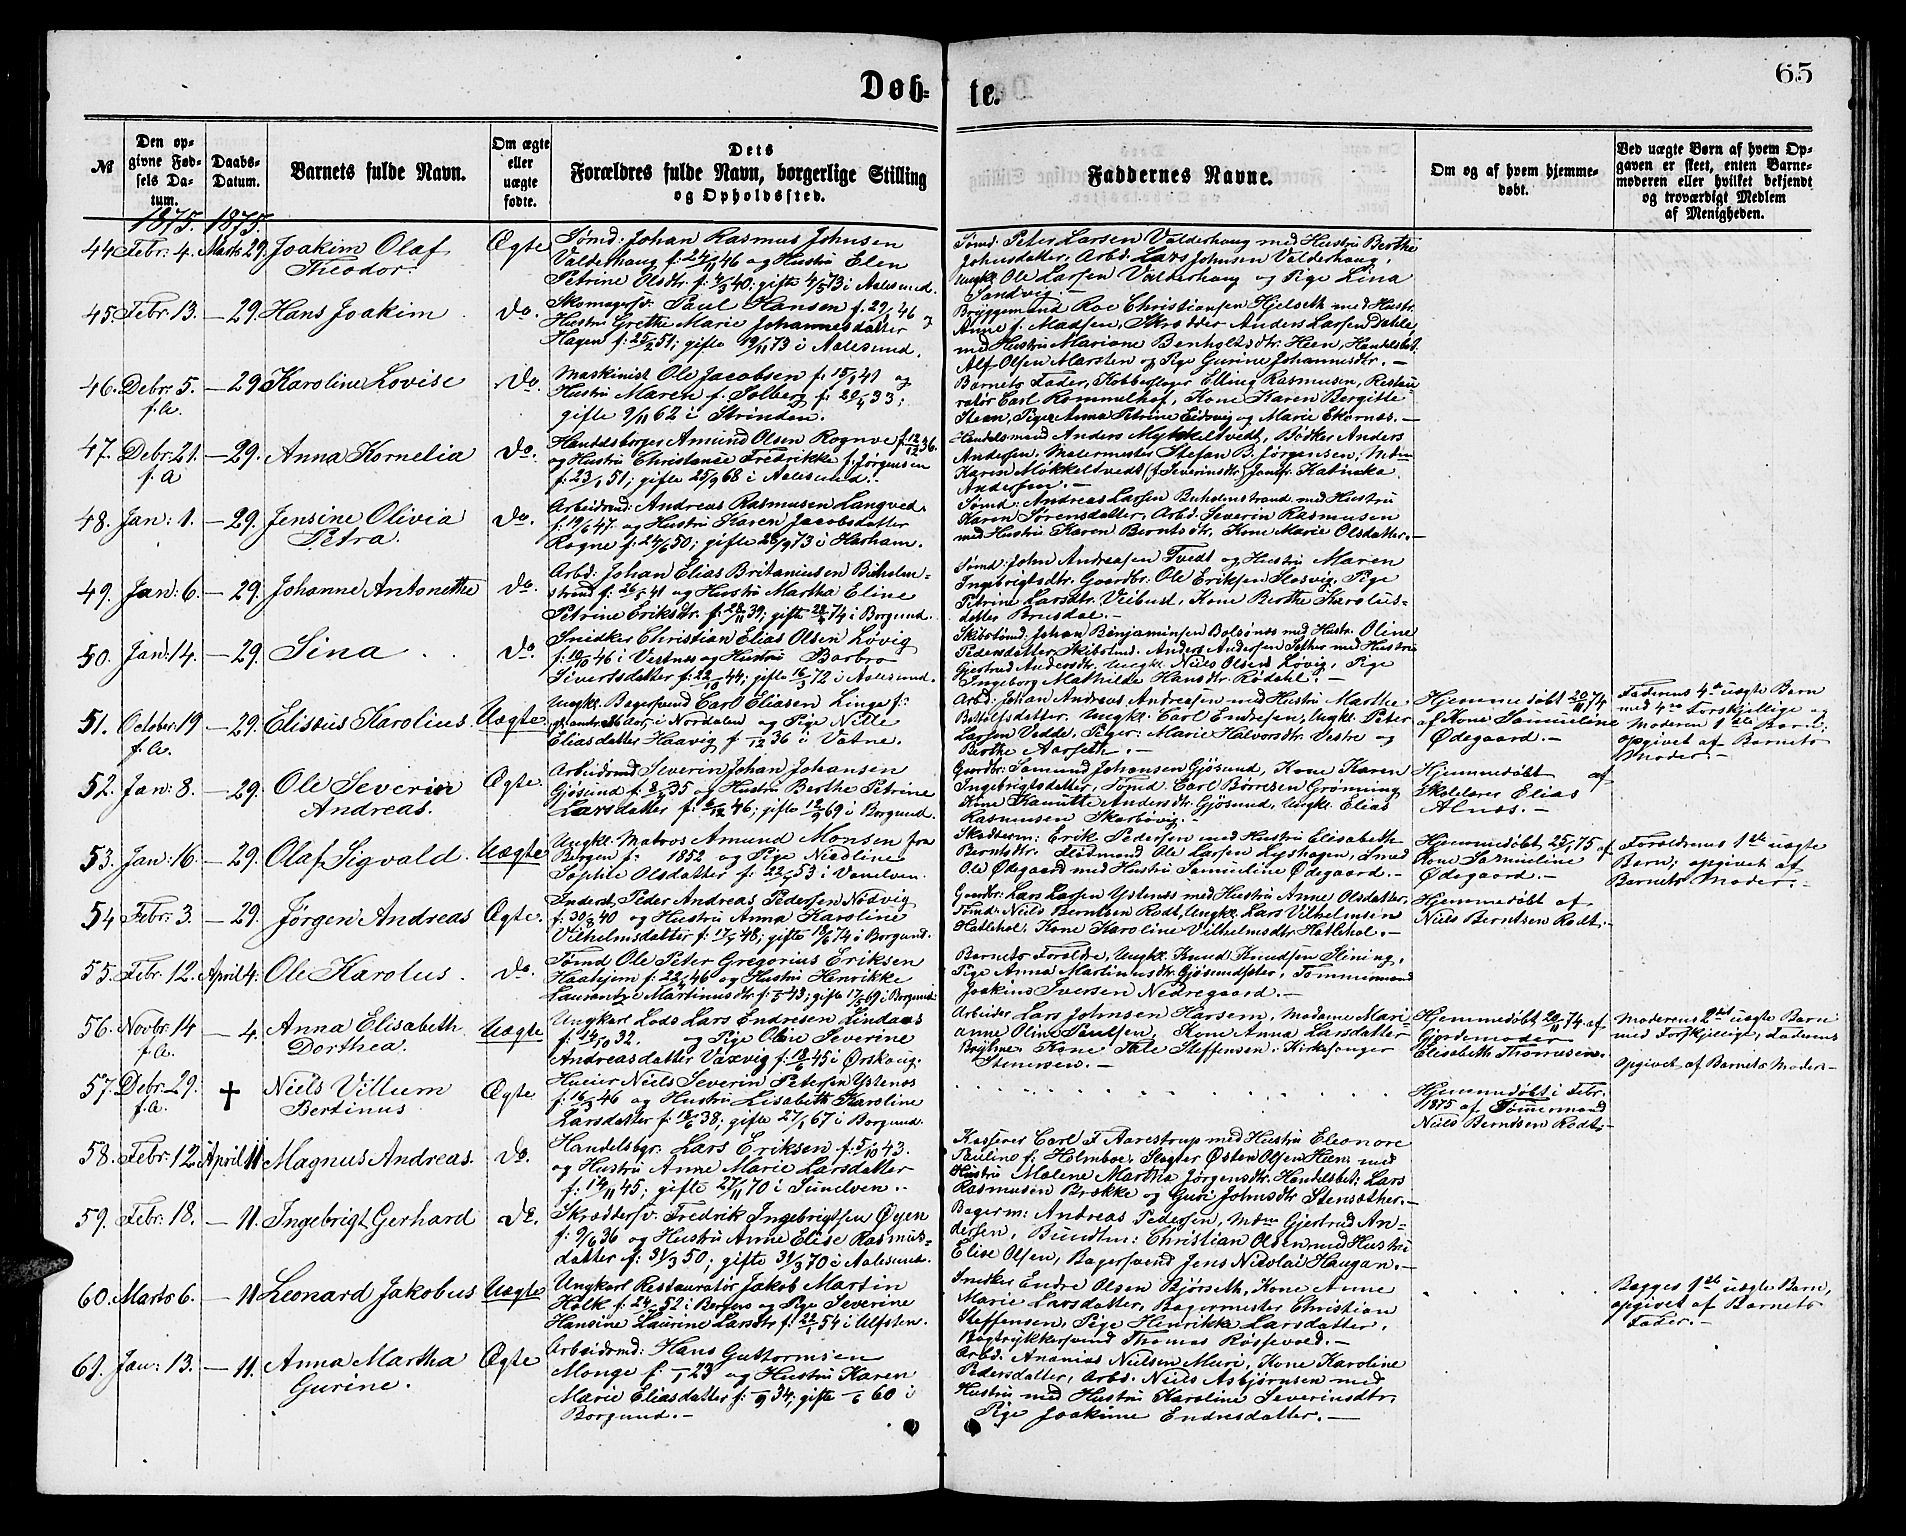 65
Døb- te.
№
Den opgivne Fødsels Datum.
Daabs-Datum.
Barnets fulde Navn.
Om ægte eller uægte fødte.
Dets Forældres fulde Navn, borgerlige Stilling og Opholdssted.
Faddernes Navne.
Om og af hvem hjemmedøbt.
Ved uægte Børn af hvem Opgaven er skeet, enten Barnemoderen eller hvilket bekjendt og troværdigt Medlem af Menigheden.
1875. 1875.
44 Febr: 4. Marts 29. Joakim Olaf Theodor. Ægte
Sømd: Johan Rasmus Johnsen
Valderhoug f: 24/11 46 og Hustru Elen
Petrine Olsdtr. f: 4/5 40; gifte 4/5 73 i Aalesund.
Sømd: Peter Larsen Valderhoug med Hustru Berthe
Johnsdatter, Arbd: Lars Johnsen Valderhoug,
Ungk: Ole Larsen Valderhoug og Pige Lina
Sandvig.
45. Febr: 13. — 29. Hans Joakim do.
Skomagersv: Paul Hansen f. 29/1 46 og
Hustru Grethe Marie Johannesdatter
Hagen f: 25/2 51; gifte 19/11 73 i Aalesund.
Bryggemand Roe Christiansen Hjelseth med Hustr.
Anne f. Madsen, Skrædder Anders Larsen Dahle,
med Hustru Mariane Benholtsdtr. Heen, Handelsbet.
Alf Olsen Marsten og Pige Gurine Johannesdtr. —
46. Debr: 5. f.A. — 29 Karoline Lovise do.
Maskinist Ole Jacobsen f. 15/1 41 og
Hustru Maren f. Solberg f: 29/4 33;
gifte 9/11 62 i Strinden.
Barnets Fader, Kobberslager Elling Rasmusen, Restau-
ratør Carl Rommelhof, Kone Karen Bergitte
Steen, Piger Anna Petrine Eidsvig og Marie Ekornæs. —
47. Debr: 21. f.A — 29. Anna Kornelia do.
Handelsborger Amund Olsen Rognve f. 12/12 36.
og Hustru Christanse Fredrikke f. Jørgensen
f: 23/1 51; gifte 25/9 68 i Aalesund.
Handelsmand Anders Mykkeltvedt, Bødker Anders
Andersen, Malermester Stefan B. Jørgensen, Mdm
Karen Møkkeltvedt (f. Severinsdtr.) Jomfr. Katinka
Andersen. —
48. Jan: 1. — 29. Jensine Olivia Petra. do
Arbeidsmd: Andreas Rasmusen Langved.
f: 19/6 47. og Hustru Karen Jacobsdatter
Rogne f: 24/6 50; gifte 28/9 73 i Harham.
Sømd: Andreas Larsen Buholmstrand med Hustru
Karen Sørensdatter, Arbd: Severin Rasmusen
med Hustru Karen Berntsdtr. Kone Marie Olsdatter. —
49. Jan: 6. — 29. Johanne Antonette do.
Arbd: Johan Elias Britaniusen Buholm-
strand f: 26/5 41 og Hustru Martha Eline
Petrine Eriksdtr. f: 28/11 39; gifte 28/5 74 i Borgund.
Sømd: John Andreasen Tvedt og Hustru Maren
Ingebrigtsdtr. Gaardbr. Ole Eriksen Slosvig, Pige
Petrine Larsdtr. Veibust, Kone Berthe Karolus-
datter Brusdal. —
50. Jan: 14. — 29. Sina do.
Snidker Christian Elias Olsen Løvig
f: 10/10 46 i Vestnæs og Hustru Barbro
Sivertsdatter f: 22/10 44; gifte 16/3 72 i Aalesund.
Skibstmd: Johan Benjaminsen Bolsønæs med Hustr. Oline
Pedersdatter, Skibstmd. Anders Andersen Sæther med Hustru
Gjertrud Andersdtr. Ungk. Niels Olsen Løvig, Pige
Ingeborg Mathilde Hansdtr. Rødahl. —
51. October 19 f.A. — 29. Elisæus Karolius. Uægte
Ungk. Bagersvend Carl Eliasen Linge f:
i Nordalen og Pige Nille
Eliasdatter Haavig f 12 36 i Vatne.
Arbd. Johan Andreas Andreasen med Hustru Marthe
Bottolfsdatter, Ungk. Carl Endresen, Ungk. Peter
Larsen Vedde, Piger: Marie Halvorsdtr. Vestre og
Berthe Aarseth. —
Hjemmedøbt 20/11 74
af Kone Samueline
Ødegaard. —
Faderens 4de uægte Barn
med 4re forskjellige og
Moderen 1ste Barn;
opgivet af Barnets
Moder. —
52. Jan: 8. — 29. Ole Severin Andreas. Ægte.
Arbeidsmd Severin Johan Johansen
Gjøsund f: 8/5 35 og Hustru Berthe Petrine
Larsdatter f: 6/12 46; gifte 12/9 69 i Borgund.
Gaardbr: Samund Johansen Gjøsund, Kone Karen
Ingebrigtsdatter, Tømd: Carl Børresen Grønning
Kone Kanutte Andersdtr. Gjøsund, Ungk. Elias
Rasmusen Skarbøvig. —
Hjemmedøbt af
Skolelærer Elias
Alnæs. —
53. Jan: 16 — 29. Olaf Sigvald. Uægte
Ungk. Matros Amund Monsen fra
Bergen f: 1852 og Pige Nicoline
Sophie Olsdatter f: 22/5 53 i Vanelven.
Skædderm: Erik Pedersen med Hustru Elisabeth
Berntsdtr. Ole Larsen Lyshagen, Smed
Ole Ødegaard med Hustru Samueline Ødegaard. —
Hjemmedøbt 25/1 75 af
Kone Samueline
Ødegaard. —
Forældrenes 1ste uægte
Barn; opgivet af
Barnets Moder. —
54 Febr: 3. — 29. Jørgen Andreas Ægte.
Inderst, Peder Andreas Pedersen Nødvig
f: 30/8 40 og Hustru Anna Karoline
Vilhelmsdatter f: 17/5 48; gifte 18/6 74 i Borgund.
Gaardbr: Lars Larsen Ystenæs med Hustru Anne Olsdatter.
Tømd: Niels Berntsen Rødt, Ungk. Lars Vilhelmsen
Hatlehol, Kone Karoline Vilhelmsdtr Hatlehol. —
Hjemmedøbt af
Niels Berntsen Rødt. —
55. Febr: 12. April 4. Ole Karolus. do.
Tømd Ole Peter Gregorius Eriksen
Haaheim f: 22/4 46 og Hustru Henrikke
Laurantze Martinusdtr. f: 1/5 43; gifte 17/5 69 i Borgund.
Barnets Forældre, Ungk. Knud Knudsen Slining,
Pige Anna Martinusdtr. Gjøsundsæter, Tømmermand
Joakim Iversen Nedregaard. —
56. Novbr: 14 f.A. — 4. Anna Elisabeth Dorthea. Uægte
Ungkarl Lods Lars Endresen Lindaas
f: 14/10 32. og Pige Oline Severine
Andreasdatter Vaxvig f: 18/6 45 i Ørskoug.
Arbeider Lars Johnsen Harsem, Madame Mari-
anne Oline Paulsen, Kone Anna Larsdatter
Brybme, Kone Tale Steffensen, Kirkesanger
Stenersen. —
Hjemmedøbt 20/11 74. af
Gjordemoder
Elisabeth Thomasen.
Moderens 2det uægte Barn
med Forskjellige, Faderens
Opgivet af Barnets Moder. —
57. Debr: 29. f.A. † Niels Villum Bertinus Ægte
Huseier Niels Severin Petersen Ystenæs
f: 16/3 46 og Hustru Lisabeth Karoline
Larsdatter f: 18/6 38; gifte 27/1 67 i Borgund.
Hjemmedøbt i Febr.
1875 af Tømermand
Niels Berntsen Rødt. —
58. Febr: 12. April 11 Magnus Andreas. do.
Handelsbgr. Lars Eriksen f. 5/10 43.
og Hustru Anne Marie Larsdatter
f: 14/11 45; gifte 27/11 70 i Sundven.
Kasserer Carl F Aarestrup med Hustru Eleonore
Pauline f. Holmboe, Slagter Østen Olsen Høen med
Hustru Malene Martha Jørgensdtr. Handelsbet: Lars
Rasmusen Brække og Guri Johnsdtr Stensæther. —
59. Febr: 18. — 11. Ingebrigt Gerhard do.
Skræddersv. Fredrik Ingebrigtsen Øyen
f: 9/6 36 og Hustru Anne Elise Rasmus-
datter f: 31/3 50; gifte 31/3 70 i Aalesund.
Bagerm: Andreas Pedersen, Mdm Gjertrud An-
dersen, Bundtm: Christian Olsen med Hustru
Elise Olsen, Bagersvend Jens Nicolai Haugan. —
60. Marts 6. — 11 Leonard Jakobus Uægte
Ungkarl Restauratør Jakob Martin
Holk f: 24/2 52 i Bergen og Pige Severine
Hansine Laurine Larsdtr f: 22/1 54 i Ulfsten.
Snedker Endre Olsen Bjørseth, Kone Anne
Marie Larsdatter, Bagermester Christian
Steffensen, Pige Henrikke Larsdatter,
Bogtrykkersvend Thomas Røssevold. —
Begges 1ste uægte Barn,
opgivet af Barnets
Fader. —
61. Jan: 13. — 11. Anna Martha Gurine. Ægte
Arbeidsmd: Hans Guttormsen
Monge f: 1 23 og Hustru Karen
Marie Eliasdatter f: 9 34; gifte 6 60 i
Borgund. —
Arbd: Ananias Nielsen Muri, Kone Karoline
Pedersdatter, Arbd: Niels Asbjørnsen med
Hustru med Hustru Karoline Severinsdtr,
Pige Joakime Endresdatter. —